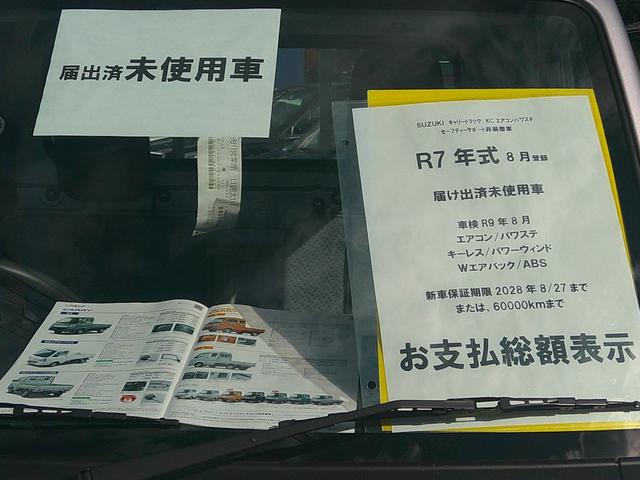 届出済未使用車
SUZUKI キャリートラック KC エアコンパワステ
セーフティーサポート非装着車
R7 年式 8月登録
届け出済未使用車
車検 R9 年 8 月
エアコン/パワステ
キーレス/パワーウィンド
Wエアバック/ABS
新車保証期限 2028 年 8/27 まで
または、60000kmまで
お支払総額表示
CARRY